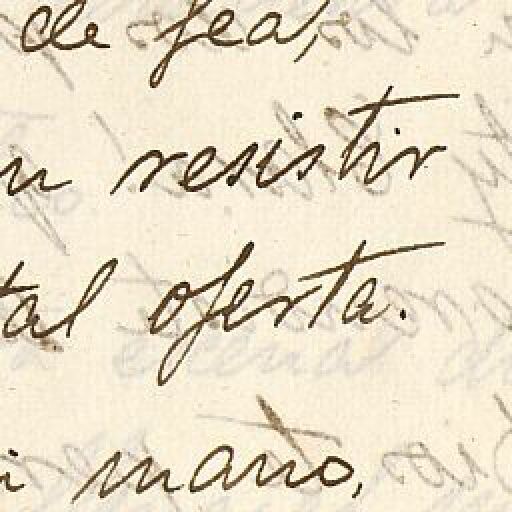 de fea,
resistir
tal oferta.
mano,